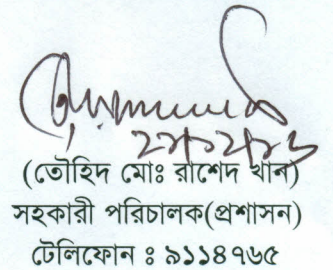 (তৌহিদ মোঃ রাশেদ খান)
সহকারী পরিচালক(প্রশাসন)
টেলিফোন ঃ ৯১১৪৭৬৫